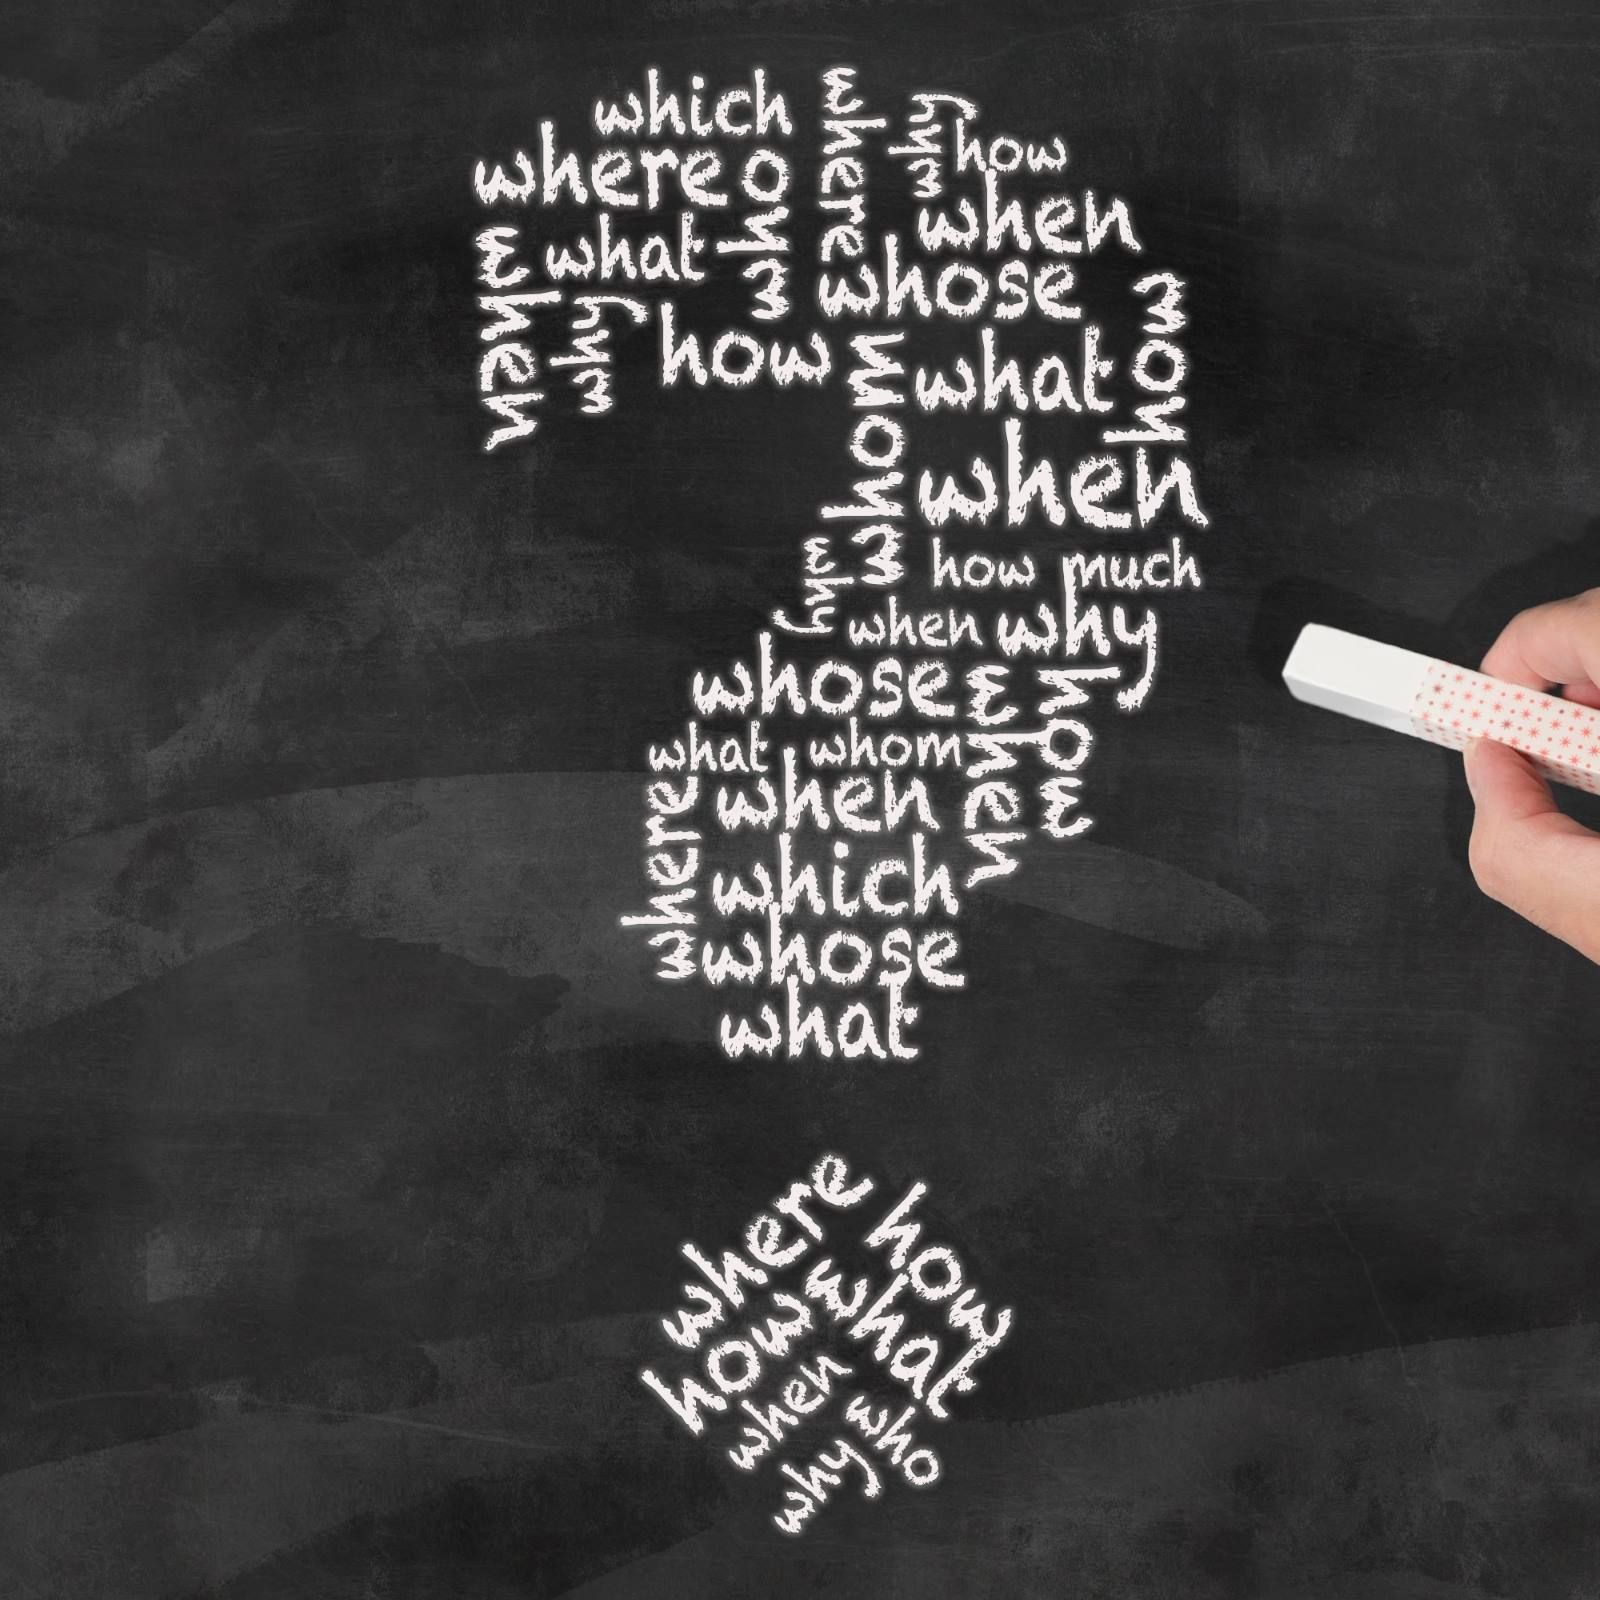 which
where
why
how
where
who
when
what
when
whose
why
how
whom
what
how
when
why
whom
how much
when
why
whose
when
how
what
whom
where
when
which
whose
what
where
how
how
what
when
who
why